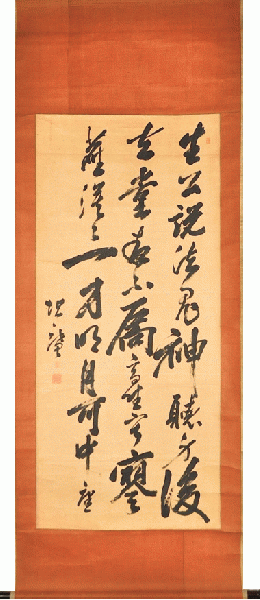 生公説法鬼神聴身後
空堂夜不扃高坐寂寥
塵漠々一方明月可中庭